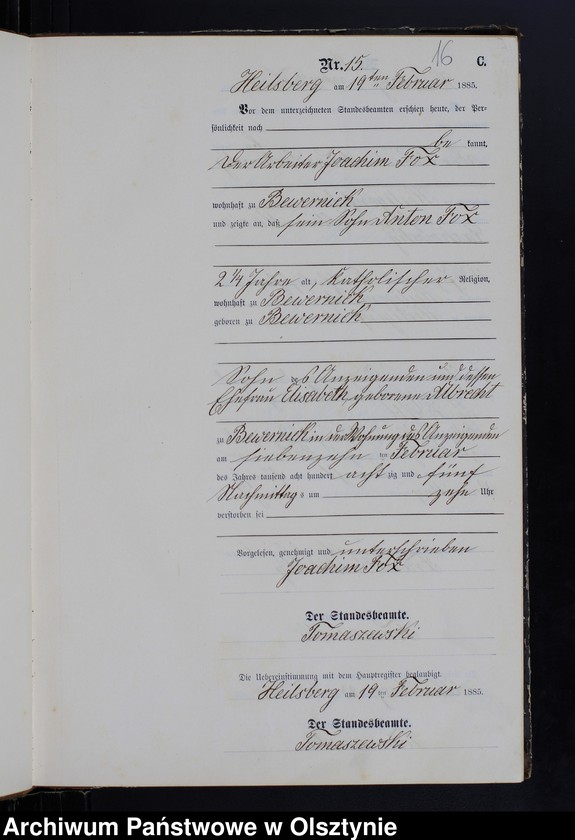 16
Nr. 15. C.
Heilsberg am 19ten Februar 1885.
Vor dem unterzeichneten Standesbeamten erschien heute, der Per-
sönlichkeit nach
be kannt,
Der Arbeiter Joachim Fox
wohnhaft zu Bewernick
und zeigte an, daß sein Sohn Anton Fox
2 1/4 Jahre alt, katholischer Religion,
wohnhaft zu Bewernick,
geboren zu Bewernick
Sohn des Anzeigenden und dessen
Ehefrau Elisabeth, geborene Albrecht
zu Bewernick in der Wohnung des Anzeigenden
am siebenzehn ten Februar
des Jahres tausend acht hundert acht zig und fünf
Nachmittags um zehn Uhr
verstorben sei
Vorgelesen, genehmigt und unterschrieben
Joachim Fox
Der Standesbeamte.
Tomaszewski
Die Uebereinstimmung mit dem Hauptregister beglaubigt.
Heilsberg am 19ten Februar 1885.
Der Standesbeamte.
Tomaszewski
Archiwum Państwowe w Olsztynie